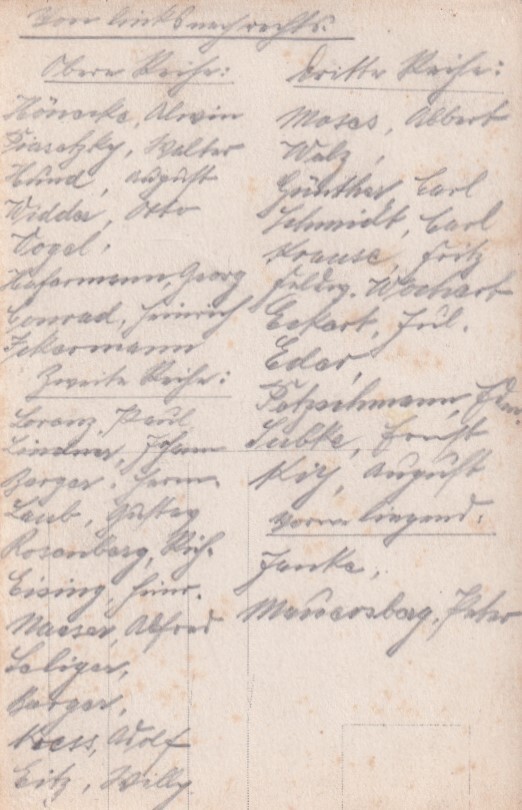 Von links nach rechts:
Obere Reihe:
Hönecke, Alwin
Piasetzky, Walter
Hund, August
Widder, Otto
Vogel,
Hafermann, Georg
Conrad, Heinrich
Ickermann
Zweite Reihe:
Lorenz, Paul
Lindner, Johann
Berger, Herm.
Laub, Gustav
Rosenberg, Rich.
Eising, Heinr.
Naeser, Alfred
Seliger,
Berger,
Kress, Adolf
Eitz, Willy
Dritte Reihe:
Moses, Albert
Walz,
Günther, Carl
Schmidt, Carl
Krause, Fritz
Feldw.
Eckart, Jul.
Eder,
Petzschmann,
Lubke, Ernst
August
vorne liegend:
Janke,
Mauersberg, Peter